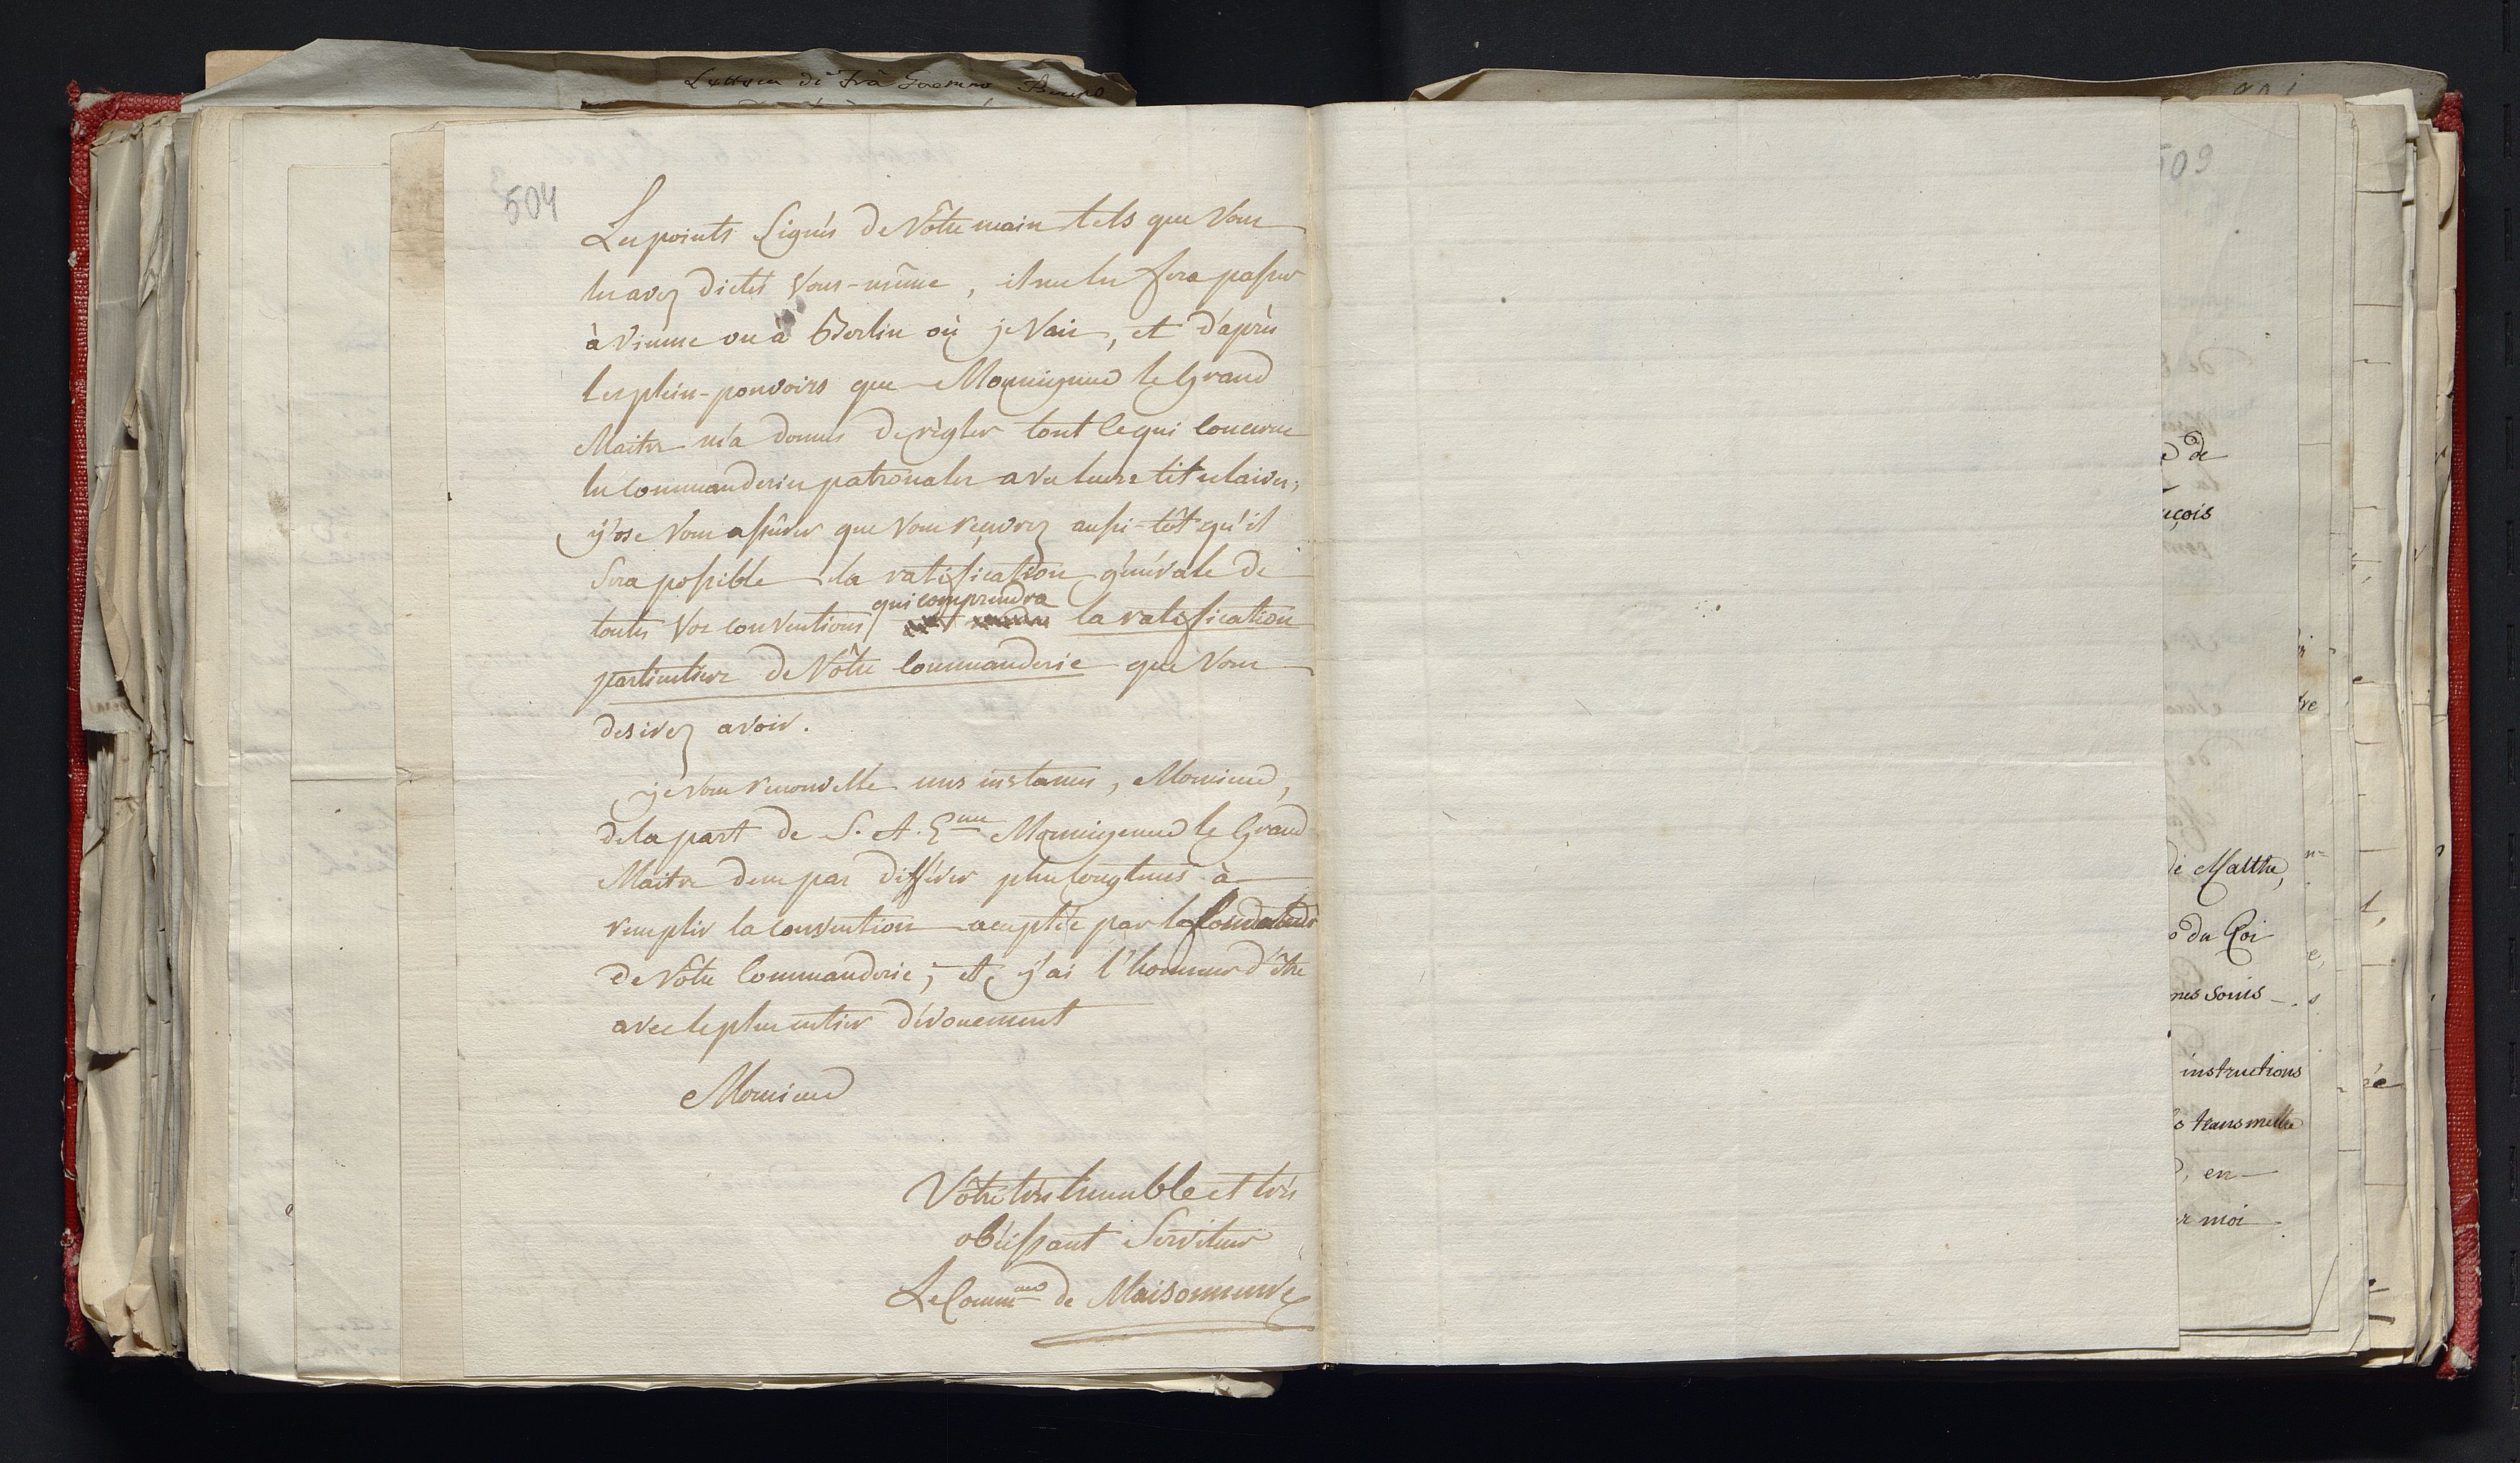 Lettera di Frà
504
Les points Signés de Vôtre main tels que Vous
les avez dictés Vous-même, il me les fera passer
à Vienne ou à Berlin où je Vais, et d'après
les plein-pouvoirs que Monseigneur le Grand
Maitre m'a donnés de règler tout ce qui concerne
les Commanderies patronales avec leurs titulaires,
j'ose Vous assûrer que Vous recevrez aussi-tôt qu'il
Sera possible la ratification générale de
qui comprendra
toutes Vos conventions la ratification
particuliere de Vôtre Commanderie que Vous
desirez avoir.
je Vous renouvelle mes instances, Monsieur,
de la part de S. A. Eme Monseigneur le Grand
Maitre de ne pas différer plus longtems à
remplir la Convention acceptée par le fondateur
de Vôtre Commanderie; et j'ai l'honneur d'être
avec le plus entier dévouement
Monsieur
Vôtre très humble et très
obéissant Serviteur
Le Commeur de Maisonneuve
509
de
de Malthe,
du Roi
instructions
transmettre
, en
moi